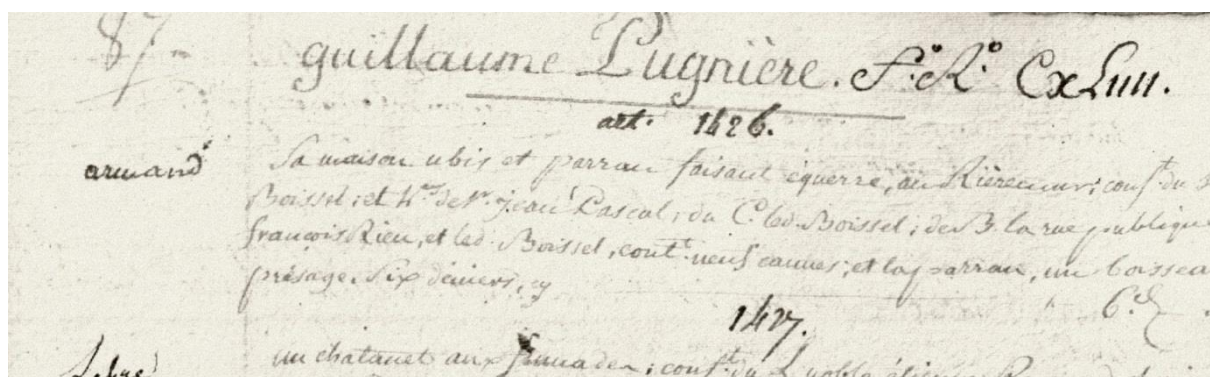 87
guillaume Pugnière. F.° R.° CxLIIII.
art. 1426.
armand
Sa maison ubis et parran faisant équerre, au Rièremur; conf.t du
Boissel; et h.rs de s.r jean Pascal; du C.t led. Boissel; de B. la rue publique
francois Rieu, et led. Boissel, cont.t neuf cannes; et la parran, un boissea
présage. Six déniers, cy
6.d
1427.
un chatanet aux ; conf.t du L. noble